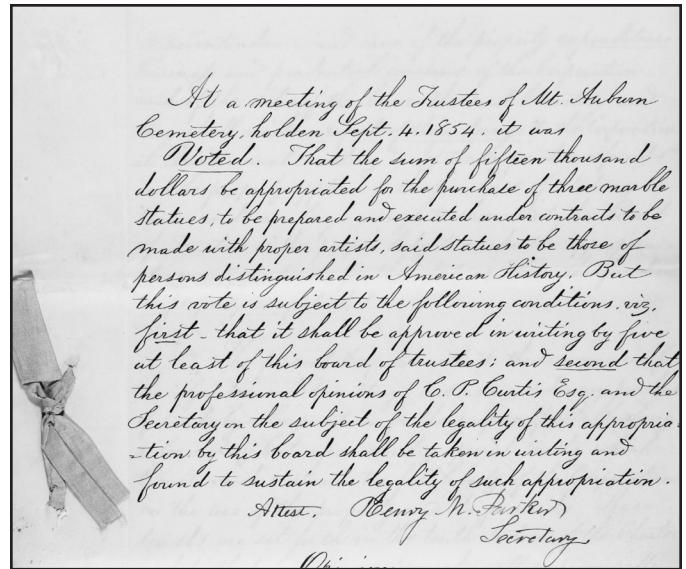 At a meeting of the Trustees of Mt. Auburn
Cemetery, holden Sept. 4. 1854. it was
Voted. That the sum of fifteen thousand
dollars be appropriated for the purchase of three marble
statues, to be prepared and executed under contracts to be
made with proper artists, said statues to be those of
persons distinguished in American History. But
this vote is subject to the following conditions. viz.
first - that it shall be approved in writing by five
at least of this board of trustees; and second that
the professional opinions of C. P. Curtis Esq. and the
Secretary on the subject of the legality of this appropria-
-tion by this board shall be taken in writing and
found to sustain the legality of such appropriation.
Attest. Henry M. Parker
Secretary